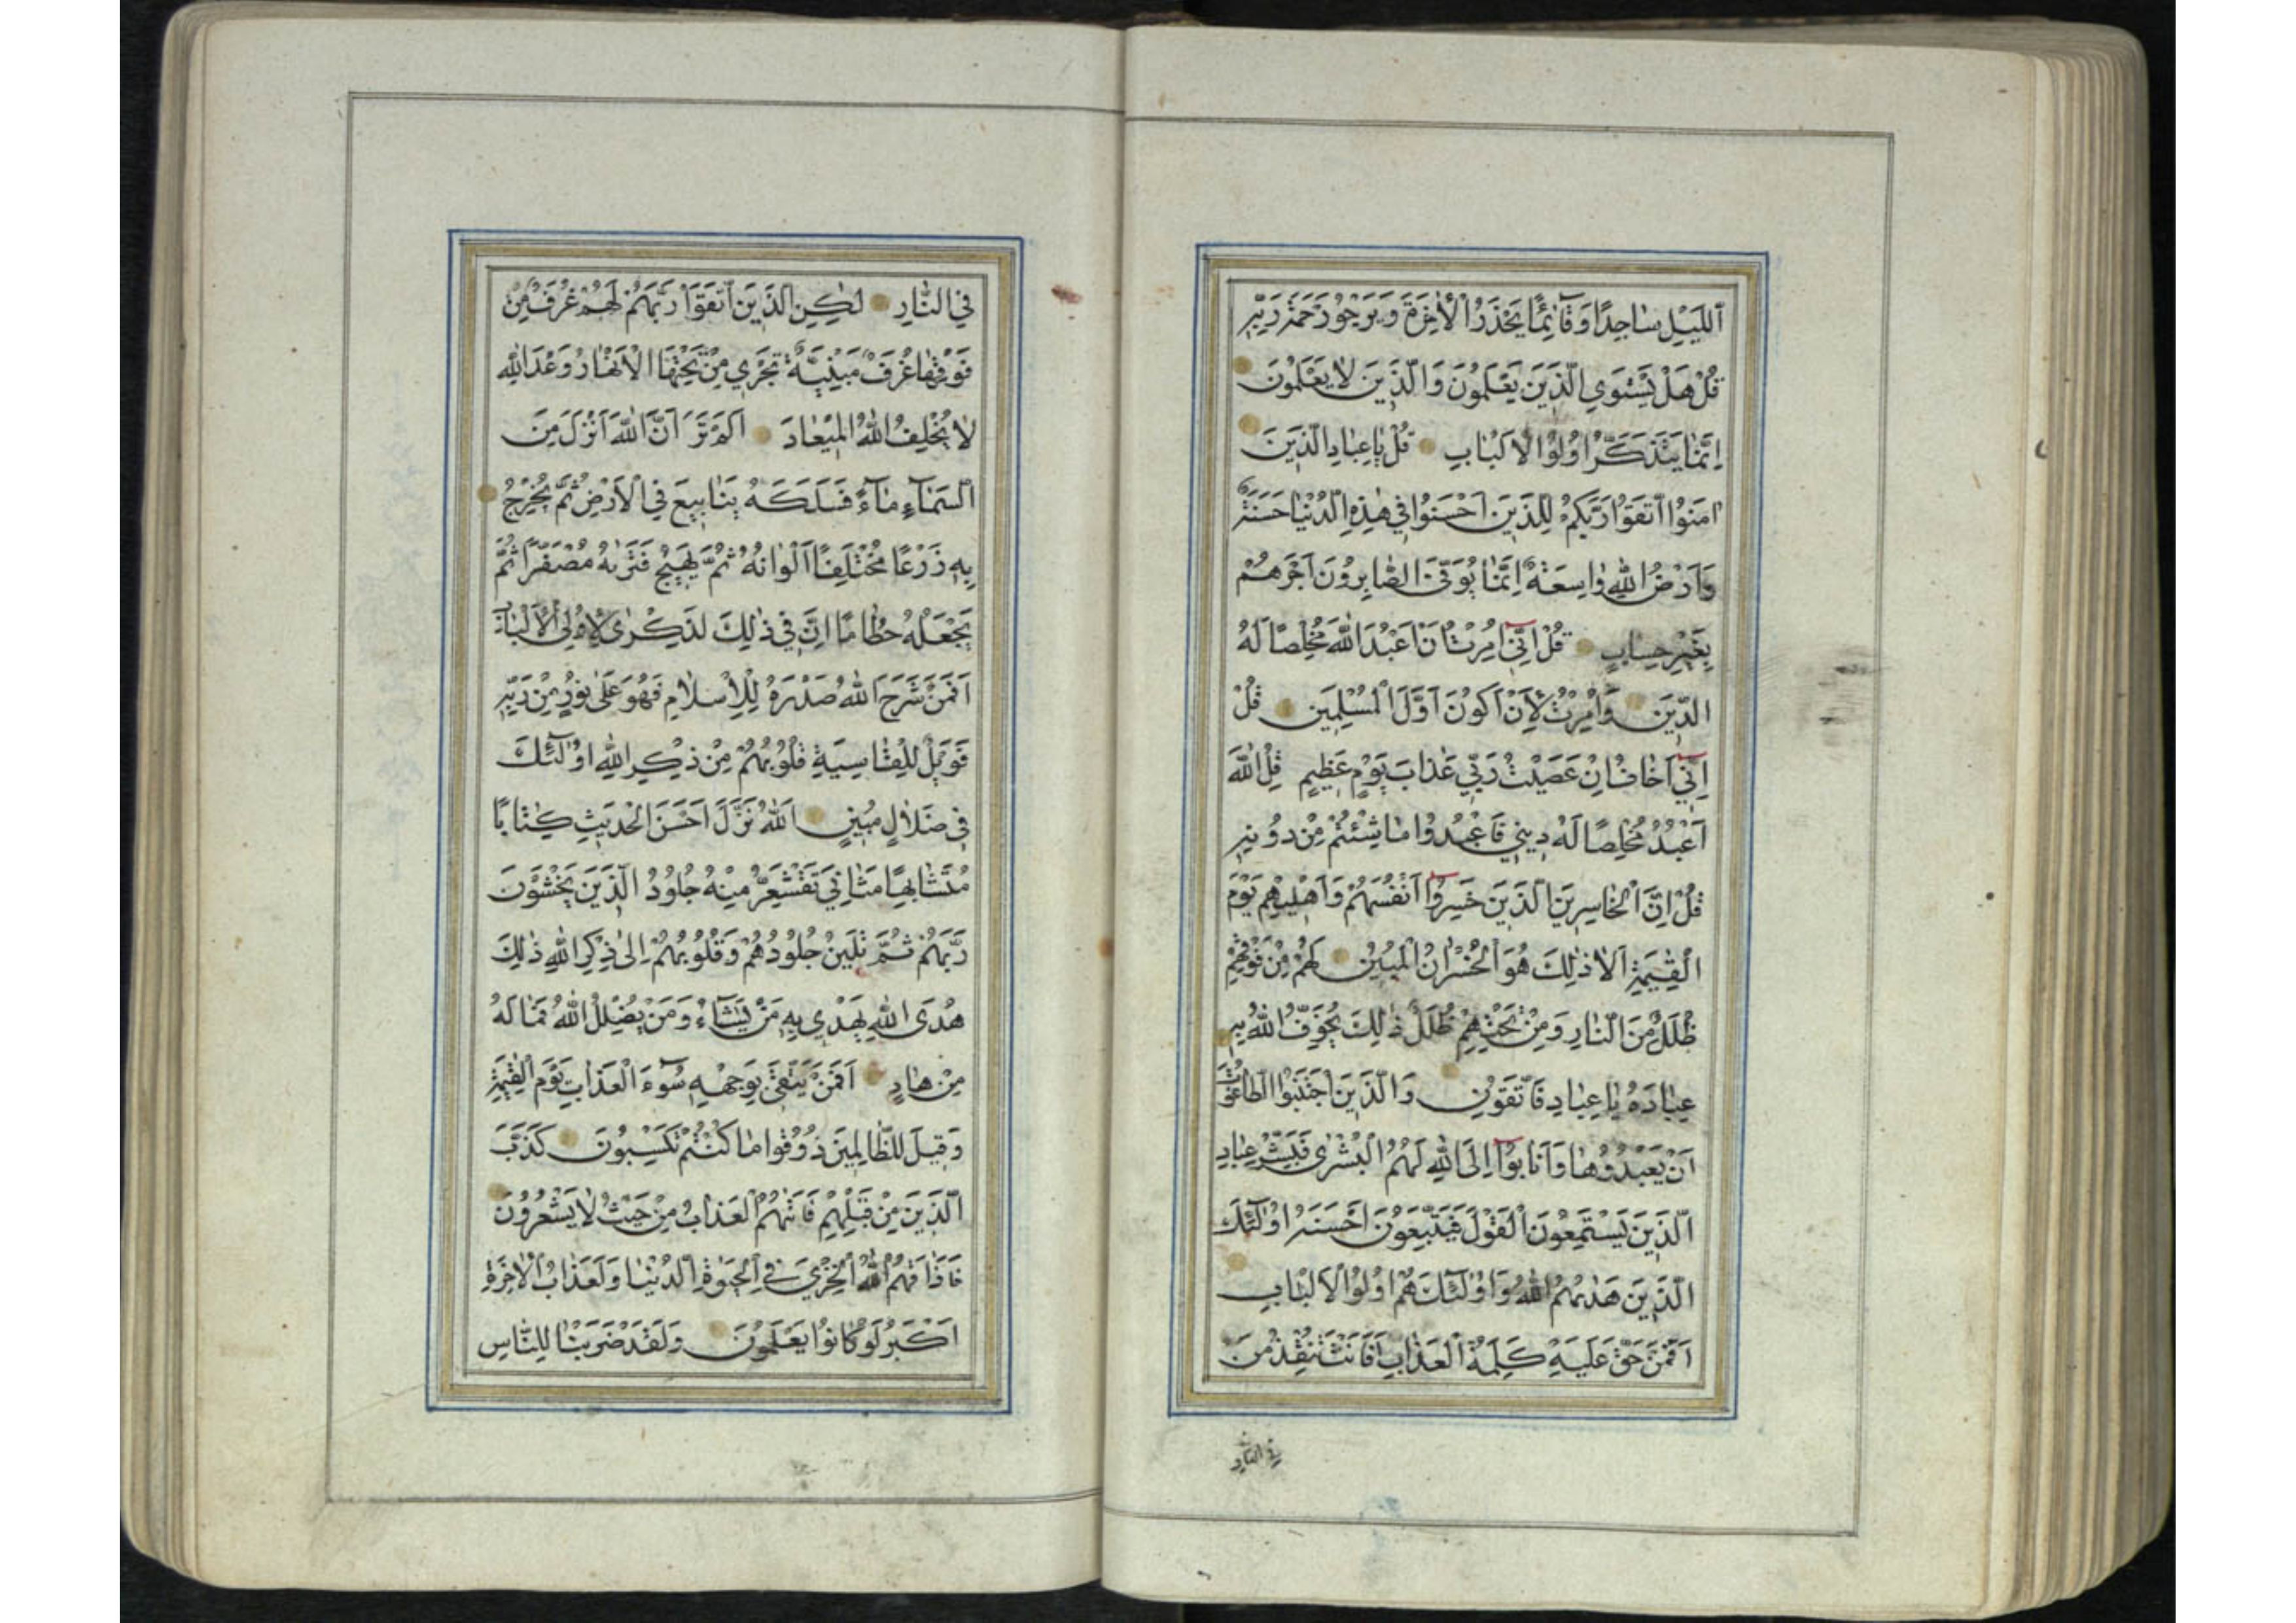 اَللَّيْلِ سٰاجِدًا وَقٰٓائِمًا يَحْذَرُ الْاٰخِرَةَ وَيَرْجُو رَحْمَةَ رَبِّهِ
قُلْ هَلْ يَسْتَوِي الَّذِينَ يَعْلَمُونَ وَالَّذِينَ لٰا يَعْلَمُونَ
اِنَّمٰا يَتَذَكَّرُ اُولُوا الْاَلْبٰابِ قُلْ يٰا عِبٰادِ الَّذِينَ
اٰمَنُوا اتَّقَوْا رَبَّكُمْ لِلَّذِينَ اَحْسَنُوا فِي هٰذِهِ الدُّنْيٰا حَسَنَةٌ
وَاَرْضُ اللّٰهِ وٰاسِعَةٌ اِنَّمٰا يُوَفَّى الصّٰابِرُونَ اَجْرَهُمْ
بِغَيْرِ حِسٰابٍ قُلْ اِنِّيٓ اُمِرْتُ اَنْ اَعْبُدَ اللّٰهَ مُخْلِصًا لَهُ
الدِّينَ وَاُمِرْتُ لِاَنْ اَكُونَ اَوَّلَ الْمُسْلِمِينَ قُلْ
اِنِّيٓ اَخٰافُ اِنْ عَصَيْتُ رَبِّي عَذٰابَ يَوْمٍ عَظِيمٍ قُلِ اللّٰهَ
اَعْبُدُ مُخْلِصًا لَهُ دِينِي فَاعْبُدُوا مٰا شِئْتُمْ مِنْ دُونِهِ
قُلْ اِنَّ الْخٰاسِرِينَ الَّذِينَ خَسِرُوٓا اَنْفُسَهُمْ وَاَهْلِيهِمْ يَوْمَ
الْقِيٰمَةِ اَلٰا ذٰلِكَ هُوَ الْخُسْرٰانُ الْمُبِينُ لَهُمْ مِنْ فَوْقِهِمْ
ظُلَلٌ مِنَ النّٰارِ وَمِنْ تَحْتِهِمْ ظُلَلٌ ذٰلِكَ يُخَوِّفُ اللّٰهُ بِهِ
عِبٰادَهُ يٰا عِبٰادِ فَاتَّقُونِ وَالَّذِينَ اجْتَنَبُوا الطّٰاغُوتَ
اَنْ يَعْبُدُوهٰا وَاَنٰابُوٓا اِلَى اللّٰهِ لَهُمُ الْبُشْرٰى فَبَشِّرْ عِبٰادِ
الَّذِينَ يَسْتَمِعُونَ الْقَوْلَ فَيَتَّبِعُونَ اَحْسَنَهُ اُولٰٓئِكَ
الَّذِينَ هَدٰيهُمُ اللّٰهُ وَاُولٰٓئِكَ هُمْ اُولُوا الْاَلْبٰابِ
اَفَمَنْ حَقَّ عَلَيْهِ كَلِمَةُ الْعَذٰابِ اَفَاَنْتَ تُنْقِذُ مَنْ
في النار
فِي النّٰارِ لٰكِنِ الَّذِينَ اتَّقَوْا رَبَّهُمْ لَهُمْ غُرَفٌ مِنْ
فَوْقِهٰا غُرَفٌ مَبْنِيَّةٌ تَجْرِي مِنْ تَحْتِهَا الْاَنْهٰارُ وَعْدَ اللّٰهِ
لٰا يُخْلِفُ اللّٰهُ الْمِيعٰادَ اَلَمْ تَرَ اَنَّ اللّٰهَ اَنْزَلَ مِنَ
السَّمٰٓاءِ مٰٓاءً فَسَلَكَهُ يَنٰابِيعَ فِي الْاَرْضِ ثُمَّ يُخْرِجُ
بِهِ زَرْعًا مُخْتَلِفًا اَلْوٰانُهُ ثُمَّ يَهِيجُ فَتَرٰيهُ مُصْفَرًّا ثُمَّ
يَجْعَلُهُ حُطٰامًا اِنَّ فِي ذٰلِكَ لَذِكْرٰى لِاُولِي الْاَلْبٰابِ
اَفَمَنْ شَرَحَ اللّٰهُ صَدْرَهُ لِلْاِسْلٰامِ فَهُوَ عَلٰى نُورٍ مِنْ رَبِّهِ
فَوَيْلٌ لِلْقٰاسِيَةِ قُلُوبُهُمْ مِنْ ذِكْرِ اللّٰهِ اُولٰٓئِكَ
فِي ضَلٰالٍ مُبِينٍ اَللّٰهُ نَزَّلَ اَحْسَنَ الْحَدِيثِ كِتٰابًا
مُتَشٰابِهًا مَثٰانِيَ تَقْشَعِرُّ مِنْهُ جُلُودُ الَّذِينَ يَخْشَوْنَ
رَبَّهُمْ ثُمَّ تَلِينُ جُلُودُهُمْ وَقُلُوبُهُمْ اِلٰى ذِكْرِ اللّٰهِ ذٰلِكَ
هُدَى اللّٰهِ يَهْدِي بِهِ مَنْ يَشٰٓاءُ وَمَنْ يُضْلِلِ اللّٰهُ فَمٰا لَهُ
مِنْ هٰادٍ اَفَمَنْ يَتَّقِي بِوَجْهِهِ سُوٓءَ الْعَذٰابِ يَوْمَ الْقِيٰمَةِ
وَقِيلَ لِلظّٰالِمِينَ ذُوقُوا مٰا كُنْتُمْ تَكْسِبُونَ كَذَّبَ
الَّذِينَ مِنْ قَبْلِهِمْ فَاَتٰيهُمُ الْعَذٰابُ مِنْ حَيْثُ لٰا يَشْعُرُونَ
فَاَذٰاقَهُمُ اللّٰهُ الْخِزْيَ فِي الْحَيٰوةِ الدُّنْيٰا وَلَعَذٰابُ الْاٰخِرَةِ
اَكْبَرُ لَوْ كٰانُوا يَعْلَمُونَ وَلَقَدْ ضَرَبْنٰا لِلنّٰاسِ